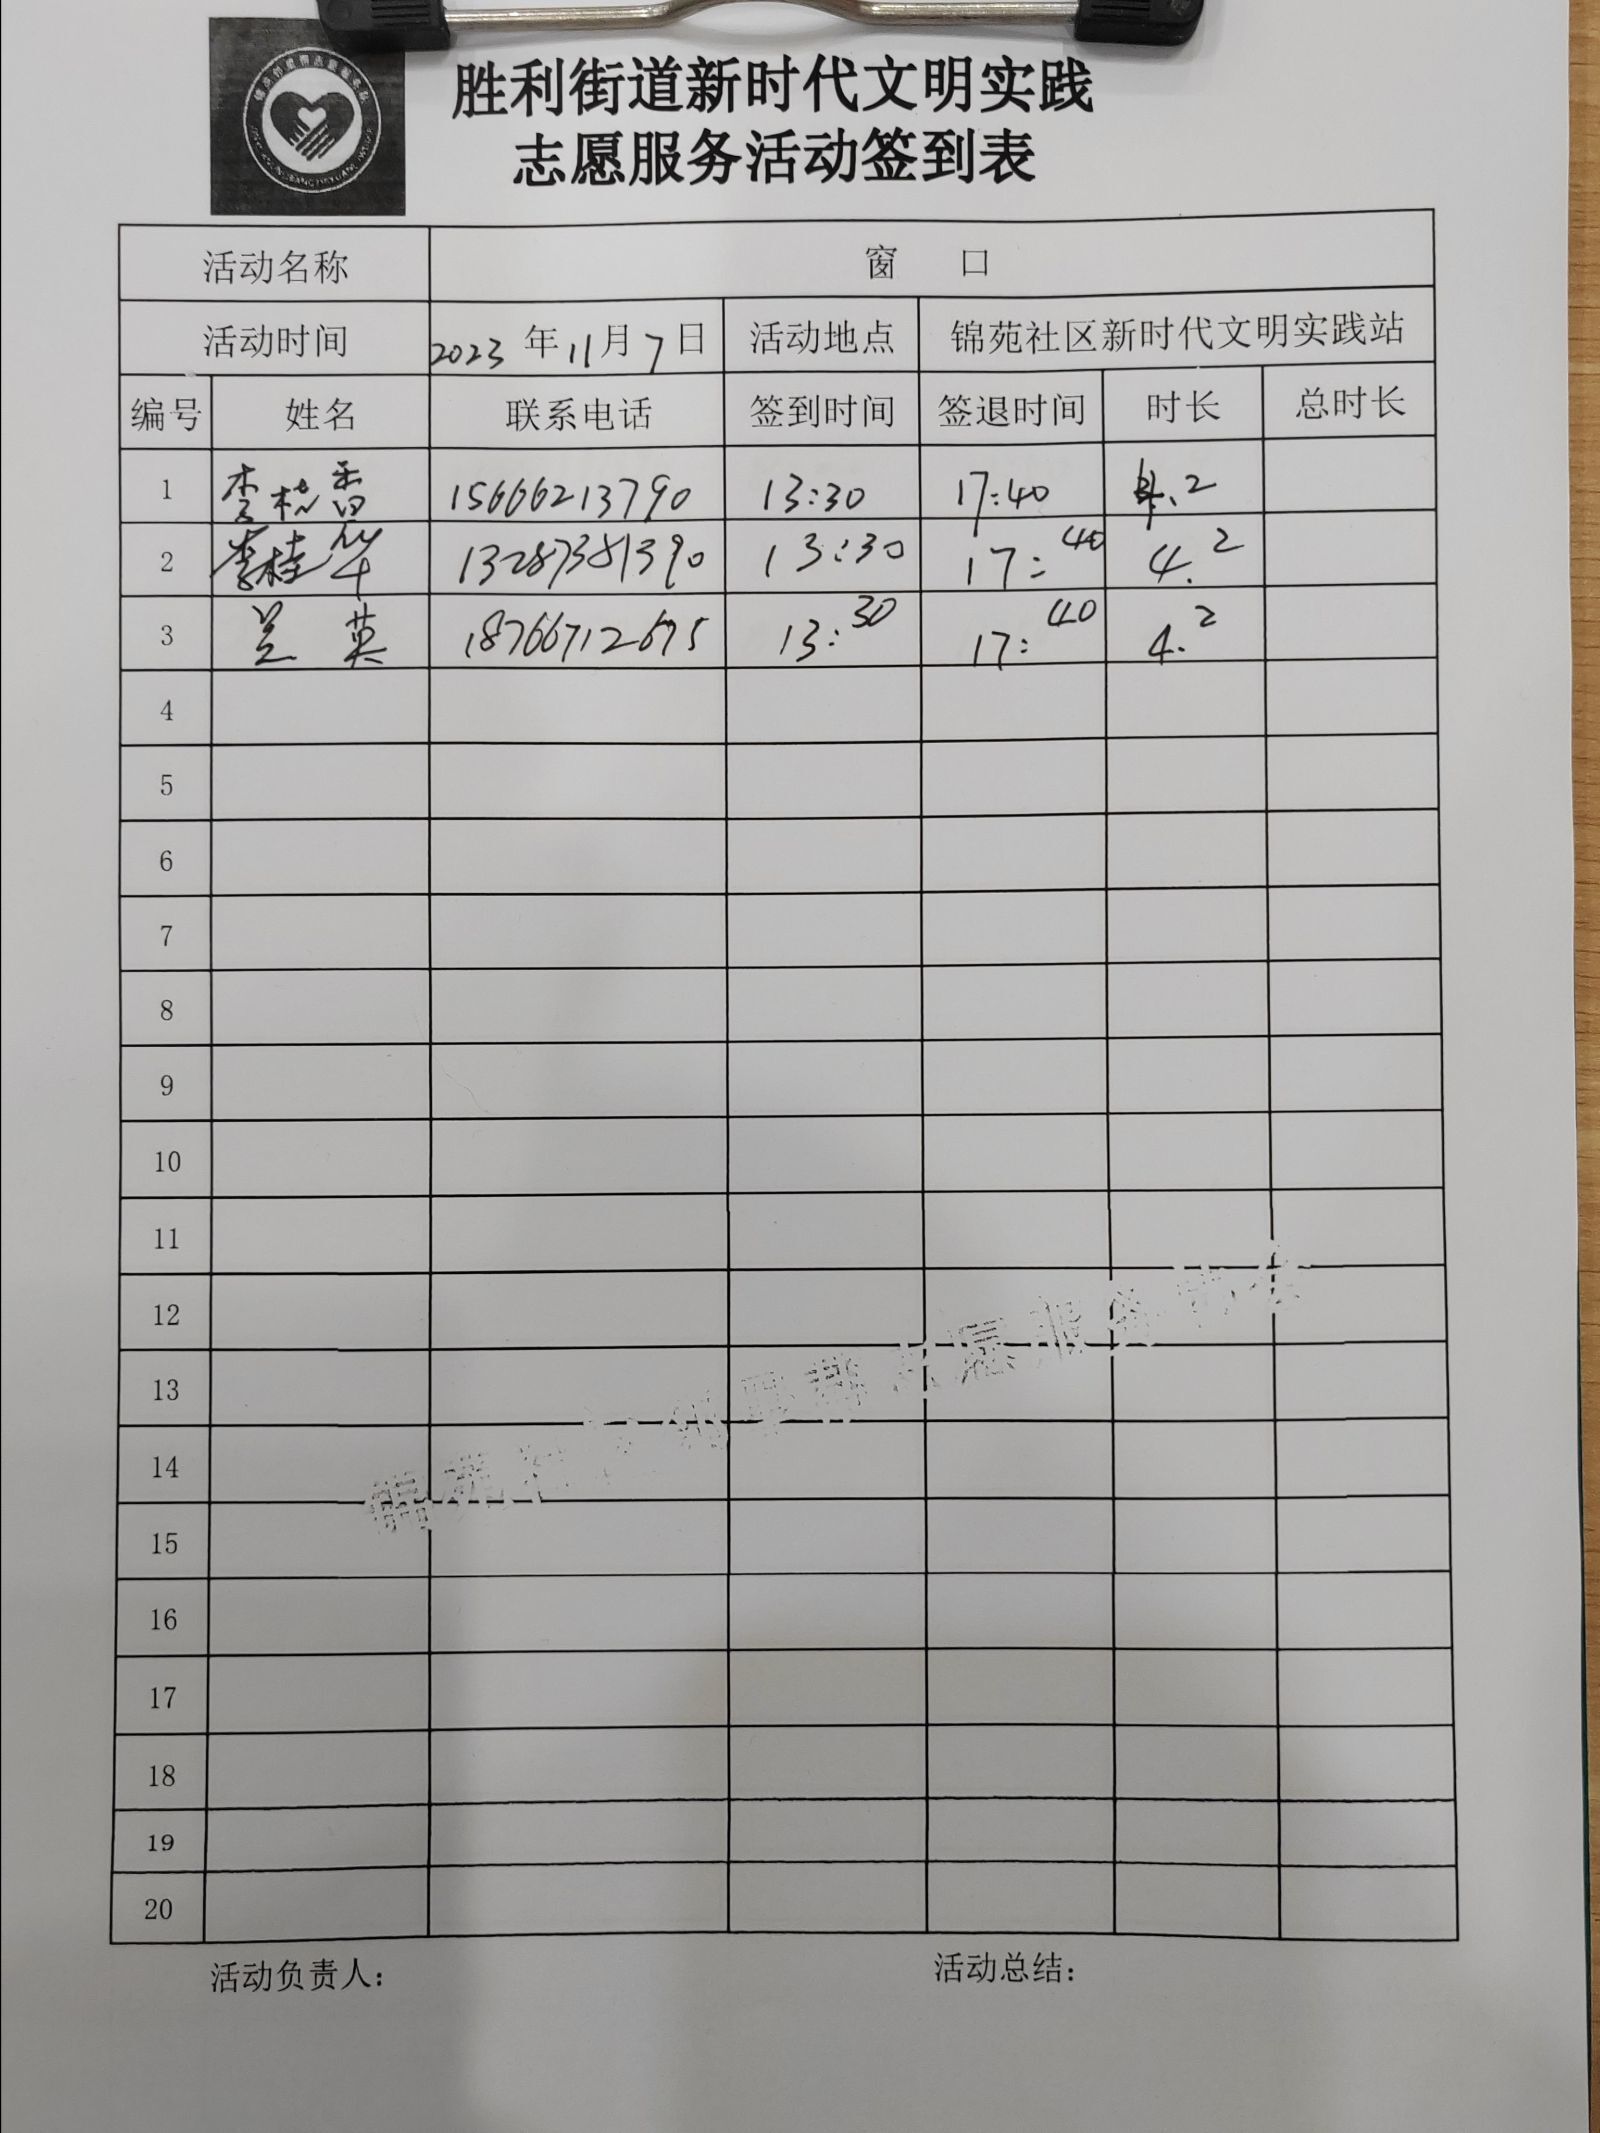 胜利街道新时代文明实践
志愿服务活动签到表
活动名称 窗 口
活动时间 2023 年 11 月 7 日 活动地点 锦苑社区新时代文明实践站
编号 姓名 联系电话 签到时间 签退时间 时长 总时长
1 李桂香 15666213790 13:30 17:40 4.2
2 李桂华 13287381390 13:30 17:40 4.2
3 兰英 18766712675 13:30 17:40 4.2
4
5
6
7
8
9
10
11
12
13
14
15
16
17
18
19
20
活动负责人： 活动总结：